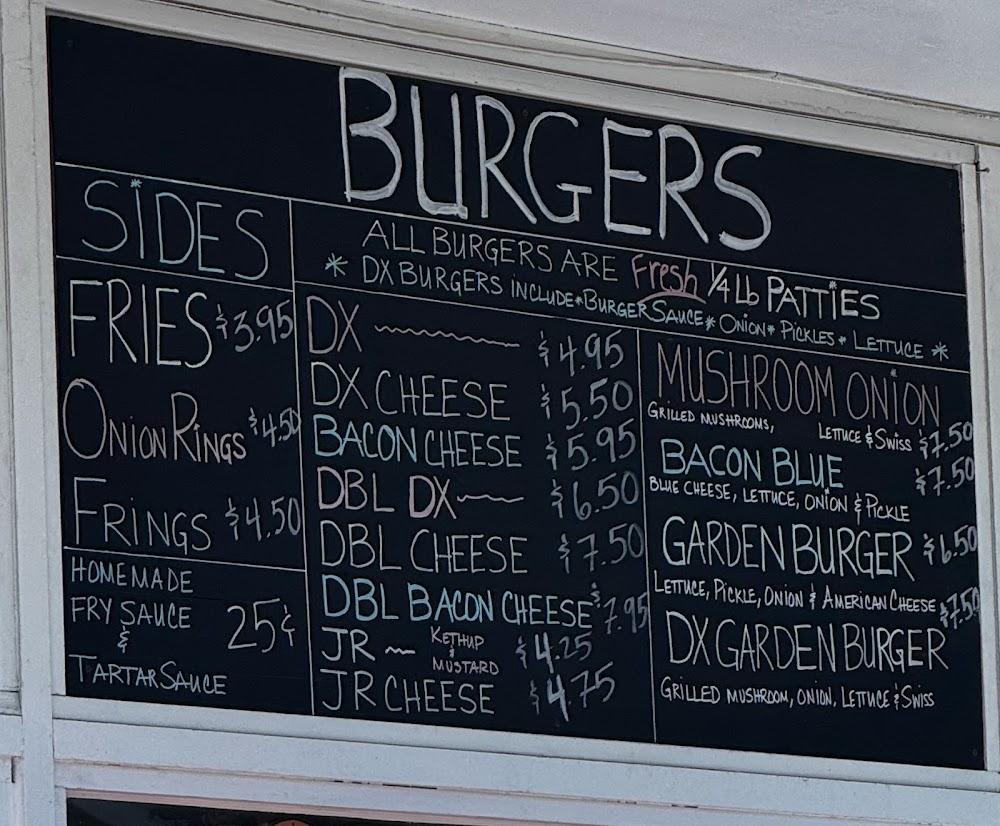 BURGERS
ALL BURGERS ARE Fresh 1/4 Lb PATTIES
* DX BURGERS INCLUDE * BURGER SAUCE * ONION * PICKLES * LETTUCE *
SIDES
FRIES $3.95
ONION RINGS $4.50
FRINGS $4.50
HOMEMADE
FRY SAUCE
&
TARTAR SAUCE
25¢
DX $4.95
DX CHEESE $5.50
BACON CHEESE $5.95
DBL DX $6.50
DBL CHEESE $7.50
DBL BACON CHEESE $7.95
JR KETHUP & MUSTARD $4.25
JR CHEESE $4.75
MUSHROOM ONION
GRILLED MUSHROOMS, LETTUCE & SWISS $7.50
BACON BLUE $7.50
BLUE CHEESE, LETTUCE, ONION & PICKLE
GARDEN BURGER $6.50
LETTUCE, PICKLE, ONION & AMERICAN CHEESE
DX GARDEN BURGER $7.50
GRILLED MUSHROOM, ONION, LETTUCE & SWISS